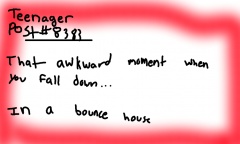 Teenager
Post #8383
That awkward moment when
you fall down...
In a bounce house